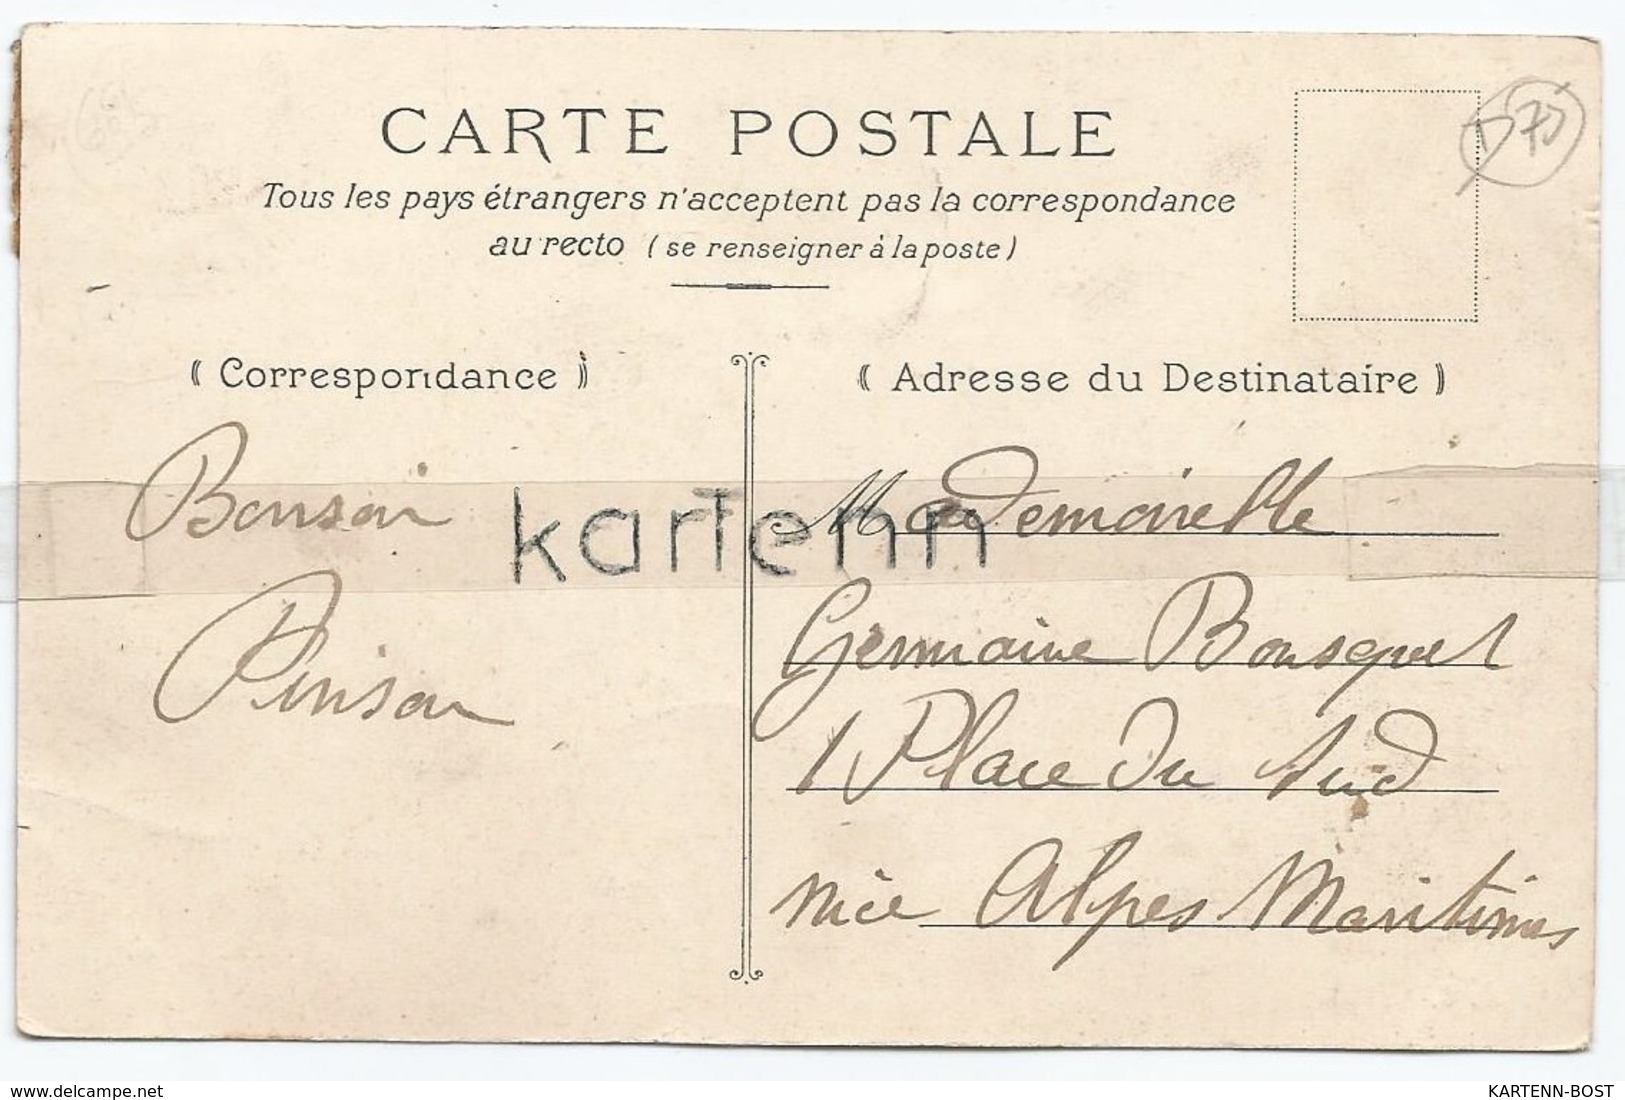 CARTE POSTALE
D75
Tous les pays étrangers n'acceptent pas la correspondance
au recto (se renseigner à la poste)
Correspondance
Adresse du Destinataire
Bonsoir
Pinson
kartenn
Mademoiselle
Germaine Bousquet
1 Place Du Sud
nice Alpes Maritimes
www.delcampe.net
KARTENN-BOST